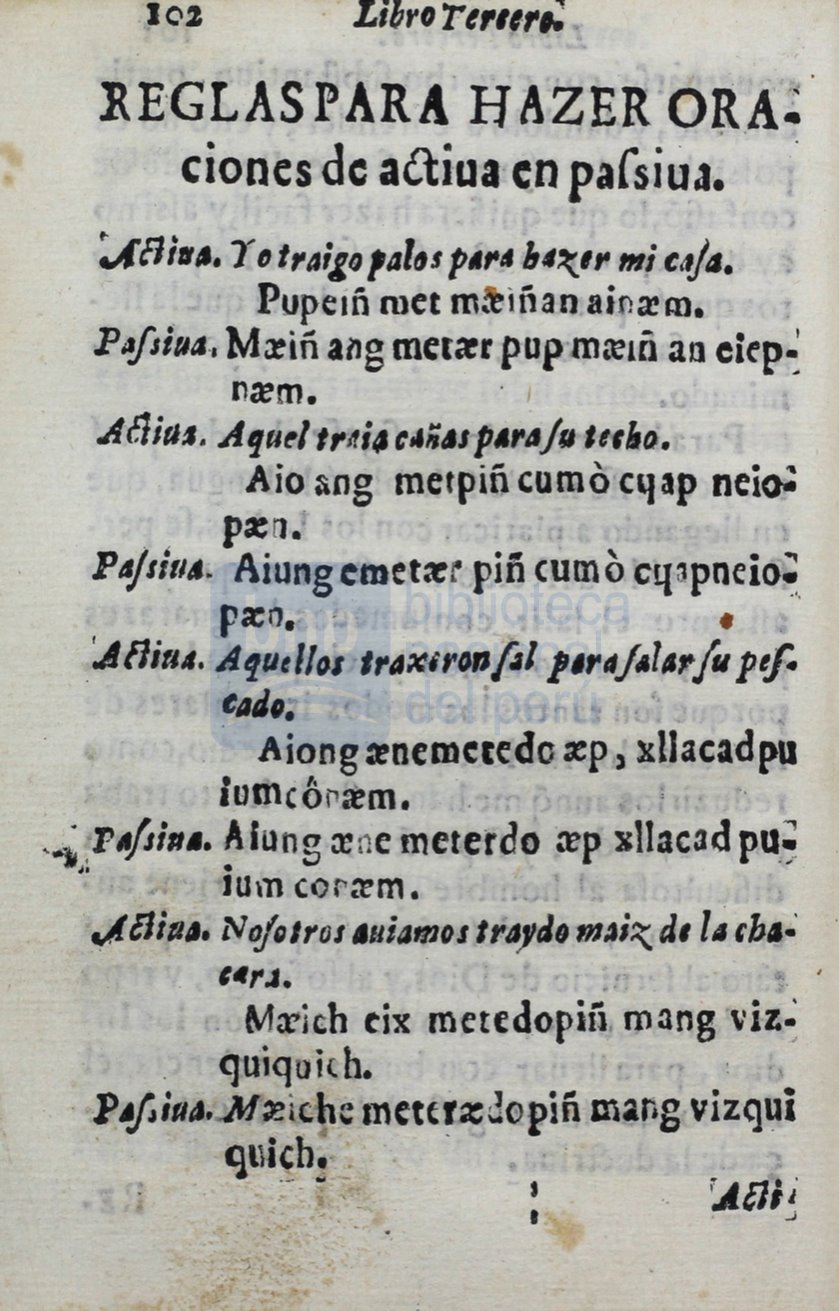 102 Libro Tercero.
REGLAS PARA HAZER ORA-
ciones de actiua en paſsiua.
Actiua. Yo traigo palos para hazer mi caſa.
Pupeiñ met mæiñan ainæm.
Paſsiua. Mæiñ ang metær pup mæiñ an eiep-
næm.
Actiua. Aquel traia cañas para ſu techo.
Aio ang metpiñ cumò cɥap neio-
pæn.
Paſsiua. Aiung emetær piñ cumò cɥapneio-
pæn.
Actiua. Aquellos traxeron ſal para ſalar ſu peſ-
cado.
Aiong ænemetedo æp, xllacad pu
iumcôræm.
Paſsiua. Aiung æne meterdo æp xllacad pu-
ium coræm.
Actiua. Noſotros auiamos traydo maiz de la cha-
cara.
Mæich eix metedopiñ mang viz-
quiquich.
Paſsiua. Mæiche meterædopiñ mang vizqui
quich.
Acti-
biblioteca
nacional
del perú